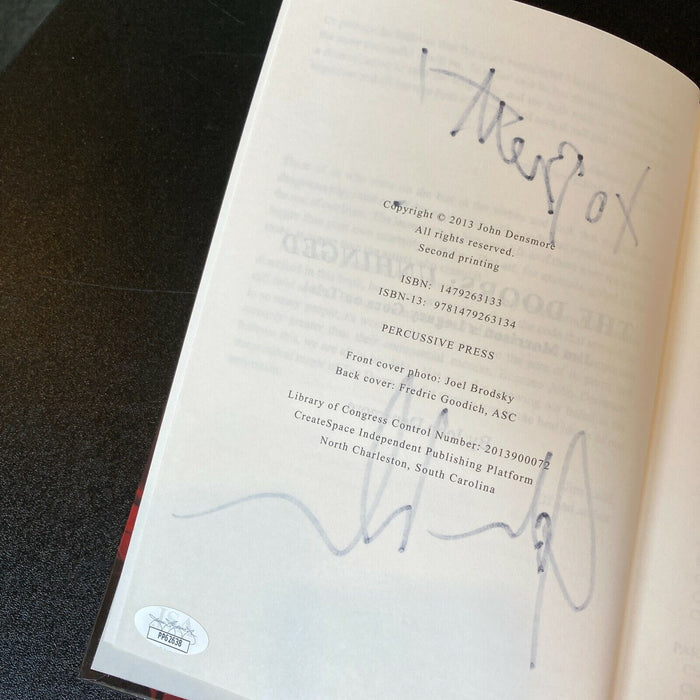 Copyright © 2013 John Densmore
All rights reserved.
Second printing
ISBN: 1479263133
ISBN-13: 9781479263134
PERCUSSIVE PRESS
Front cover photo: Joel Brodsky
Back cover: Fredric Goodich, ASC
Library of Congress Control Number: 2013900072
CreateSpace Independent Publishing Platform
North Charleston, South Carolina
JSA
PP62638